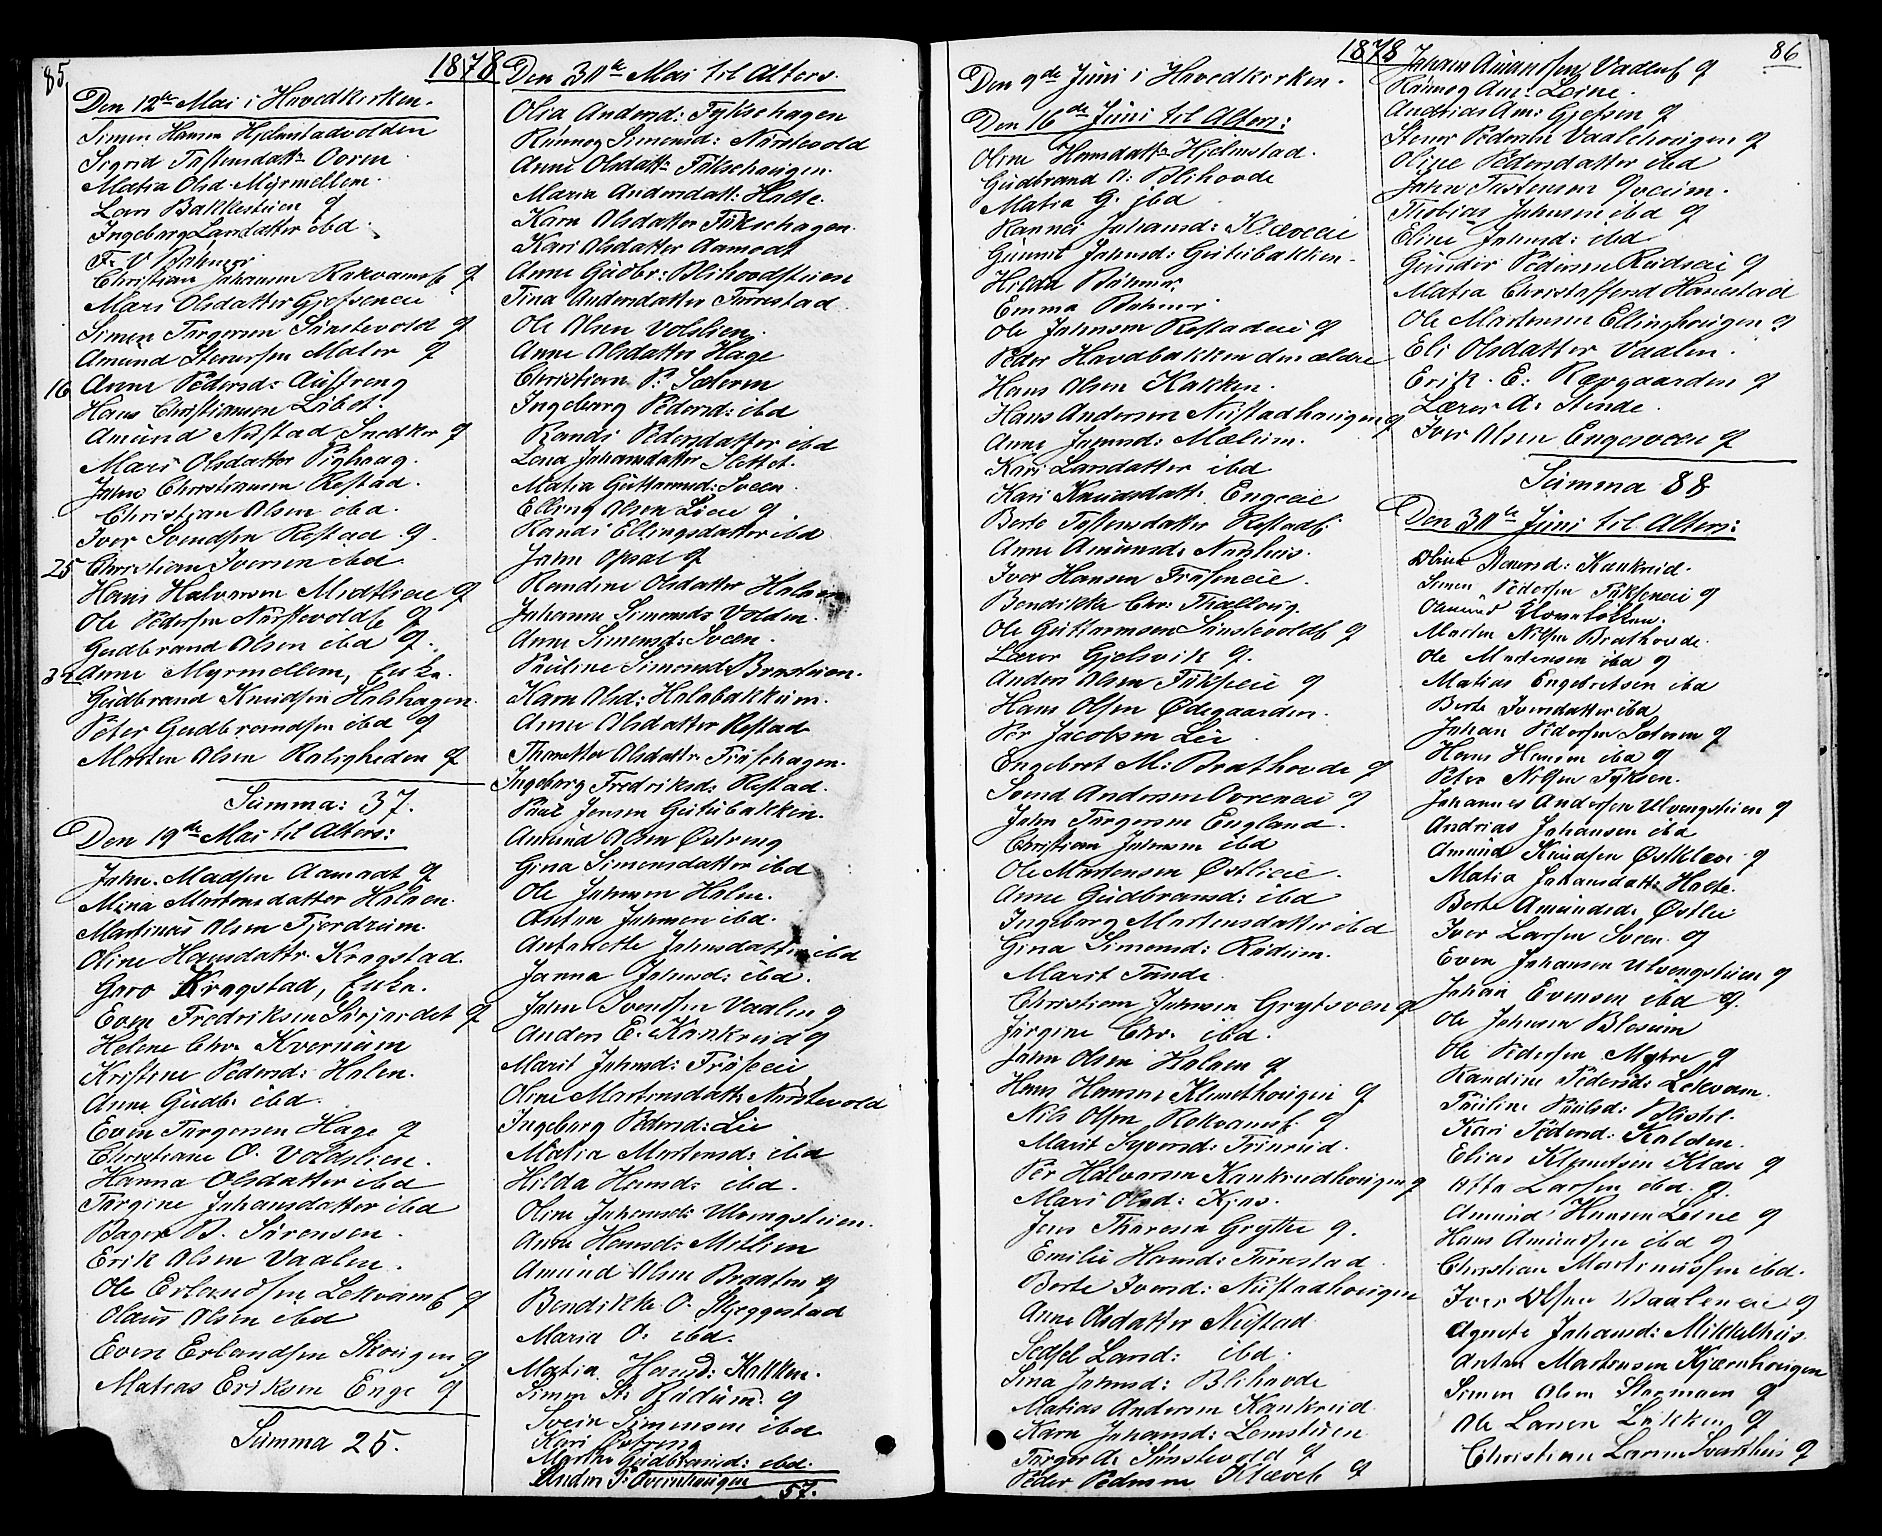 85
1878
Den 12te Mai i Hovedkirken.
Simen Hansen Hjelmstadvolden
Sigrid Tostensdatt: Ovren
Matia Olsd. Myrmellem
Lars Bakkestuen og
Ingeborg Larsdatter ibd
F. V. Bøhmer
Christian Johansen Rakvame og
Mari Olsdatter Gjefseneie
Simen Torgersen Sønstevold og
Amund Stenersen Moler og
16 Anne Pedersd: Austreng
Hans Christiansen
Amund Nustad Snedker og
Mari Olsdatter Pighaug
John Christiansen Rostad.
Christian Olsen ibd.
Iver Svendsen Rostad og
25 Christian Iversen ibd
Hans Halvorsen Midtlieie og
Ole Pedersen Nørstevolde og
Gudbrand Olsen ibd og
32 Anne Myrmellem, Enke.
Gudbrand Knudsen Holshagen
Peter Gudbrandsen ibd og
Morten Olsen Roligheden og
Summa: 37.
Den 19de Mai til Alters:
John Madsen Aamodt og
Mina Mortensdatter Halsen.
Martinus Olsen Fjerdrum.
Oline Hansdattr Krogstad
Goro Krogstad, Enke.
Even Fredriksen Sørjordet og
Helene Chr. Kvernum
Kristine Pedersd: Holen.
Anne Gudb. ibd.
Even Torgersen Hage og
Christiane O. Voldslien.
Hanna Olsdatter ibd
Torgine Johansdatter ibd
Bager B. Sørensen.
Erik Olsen Vaalen.
Ole Erlandsen Lekvame og
Olaus Olsen ibd
Even Erlandsen Skougen og
Matias Eriksen Enge og
Summa 25.
Den 30te Mai til Alters.
Olia Andersd: Tykschagen
Rønnog Simensd: Nørstevold
Anne Olsdatt:
Maria Andersdatt: Holte.
Karn Olsdatter Tykschagen.
Kari Olsdatter Aamodt
Anne Gudbr: Blihovdstuen
Tina Andersdatter Forrestad
Ole Olsen Volslien.
Anne Olsdatter Hage
Christian P. Sæteren
Ingeborg Pedersd: ibd
Randi Pedersdatter ibd
Lena Johansdatter Slettet.
Matia Guttormsd: Sveen
Elling Olsen Lieie og
Randi Ellingsdatter ibd
John Opsal og
Randine Olsdatter Halsen
Johanne Simensd: Volden.
Anne Simensd: Sveen.
Pauline Simensd Brostuen.
Karn Olsd: Holobakken.
Anne Olsdatter Rostad
Thonette Olsdattr Frøsehagen.
Ingeborg Fredriksd: Rostad.
Paul Jensen Geitubakken.
Amund Olsen Østreng
Gina Simensdatter ibd
Ole Johnsen Holen.
Anton Johnsen ibd.
Antonette Johnsdatter ibd
Janna Johnsd: ibd.
John Svendsen Vaalen og
Anders E. Kankrud og
Marit Johnsd: Frøseeie
Oline Mortensdatt: Nørstevold
Ingeborg Pedersd: Lie
Matia Mortensd: ibd
Hilda Hansd: ibd.
Oline Johansd: Ulvengstuen.
Anne Hansd: Mitlien
Amund Olsen Braaten og
Bendikke O. Skjeggestad
Maria O. ibd.
Matia Hansd: Kokken.
Simen Th. Rødum og
Svein Simensen ibd
Kari Østreng
Marthe Gudbrand: ibd.
Anders P: Overnhaugen
57.
1878
86
Den 9de Juni i Hovedkirken.
Den 16de Juni til Alters:
Oline Hansdatt: Hjelmstad.
Gudbrand A: Blihovde
Matia G. ibd
Rannei Johansd: Klæveie
Gunnil Johnsd: Geitubakken.
Hilda Bøhmer
Emma Bøhmer
Ole Johnsen Rostadeie og
Peder Hovdbakken den ældre
Hans Olsen Kakken.
Hans Andersen Nustadhaugen og
Anne Johnsd: Mælum.
Kari Larsdatter ibd
Kari Knudsdatt: Engeeie
Berte Tostensdatter Rostade
Anne Amunsd: Nørhus.
Iver Hansen Frøseneie.
Bendikke Chr: Tholloug.
Ole Guttormsen Sønstevolde og
Lærer Gjelsvik og.
Anders Olsen Tükseeie og
Hans Olsen Ødegaarden.
Per Jacobsen Lie
Engebret M: Brathovde og
Svend Andersen Ovreneie og
John Torgersen England.
Christian Johnsen ibd
Ole Mortensen Østlieie.
Anne Gudbransd: ibd
Ingeborg Mortensdatter ibd
Gina Simensd: Rødum.
Marit Tande
Christian Johnsen Grytsveen og
Jørgine Chr. ibd.
John Olsen Holsen og
Hans Hansen Klemethougen og
Nils Olsen Rokvame og
Marit Syversd: Finrud.
Per Halvorsen Kankrudhougen og
Mari Olsd: Kjos.
Jens Thoresen Grytte og.
Emilie Hansd: Forrestad
Berte Iversd: Nustadhougen
Anne Olsdatter Nustad
Sedsel Larsd: ibd.
Sina Johnsd: Blihovde
Matias Andersen Kankrud
Karn Johansd: Lomstuen
Torger A. Sønstevold og
Peder Pedersen Klæve og
Johan Amundsen Vaalen og
Rønnog Am: Loine.
Andrias Am: Gjefsen og
Stener Pedersen Vaalehougen og
Oline Pedersdatter ibd
John Tostensen Qveim.
Thobias Johnsen ibd og
Eline Johnsd: ibd
Gunder Pedersen Rudseie og
Matia Christoffersd Hanestad
Ole Mortensen Ellinghougen og
Eli Olsdatter Vaalen.
Erik. E: Rævgaarden og
Lærer A. Stende.
Iver Olsen Engesveen og
Summa 88
Den 30te Juni til Alters:
Oline Stenersd: Kankrud.
Simen Pedersen Tükseneie og
Amund Hornelökken.
Morten Nilsen Brathovde.
Ole Mortensen ibd og
Matias Engebretsen ibd
Berte Iversdatter ibd
Johan Pedersen Sæteren og
Hans Hansen ibd og
Peter Nilsen Tyksen.
Johannes Andersen Ulvengstuen og
Andrias Johansen ibd
Amund Knudsen Østkleve og
Matia Johansdatt: Holte.
Berte Amundsd: Østlie
Iver Larsen Sveen og
Even Johansen Ulvengstuen og
Johan Evensen ibd og.
Ole Johnsen Blesum
Ole Pedersen Myhre og
Randine Pedersd: Lekvam.
Pauline Paulsd:
Kari Pedersd: Kolden.
Elias Klemetsen Klæve og
Otto Larsen ibd. og.
Amund Hansen Loine og
Hans Amundsen ibd og
Christian Martinussen ibd.
Iver Olsen Vaaleneie og
Agnete Johansd: Mikkelhus
Anton Martensen Kjærnhougen
Simen Olsen Stormoen og
Ole Larsen Løkken og
Christian Larsen Svarthus og